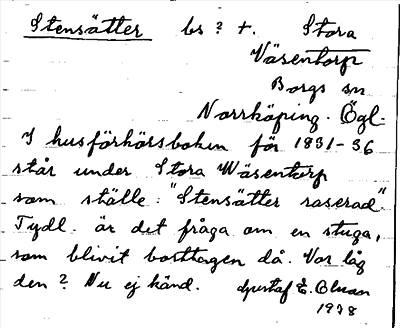 Stensätter bs ? t. Stora
Väsentorp
Borgs sn
Norrköping. Ögl.
I husförhörsboken för 1831-36
står under Stora Wäsentorp
som ställe: "Stensätter raserad".
Tydl. är det fråga om en stuga,
som blivit borttagen då. Var låg
den? Nu ej känd. Gustaf E. Olsson
1938